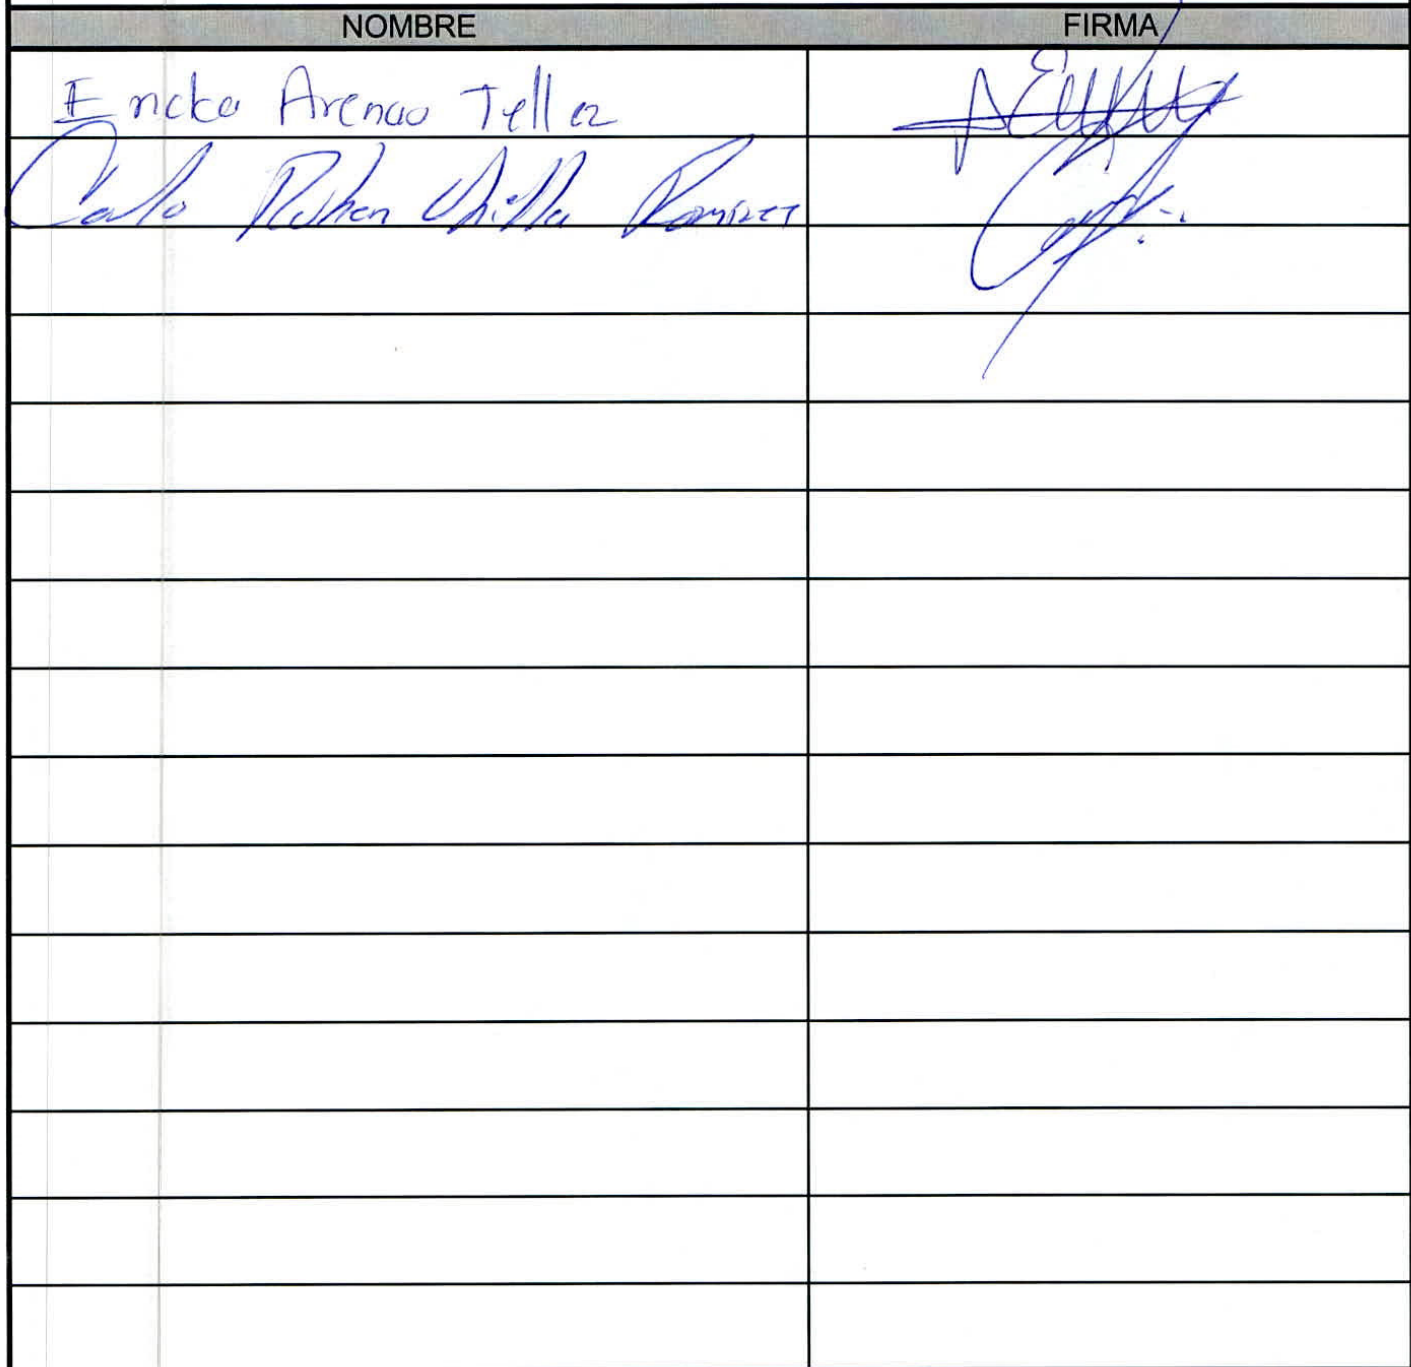 NOMBRE FIRMA
Ericka Arenas Tellez
Carlo Ruben Ramirez